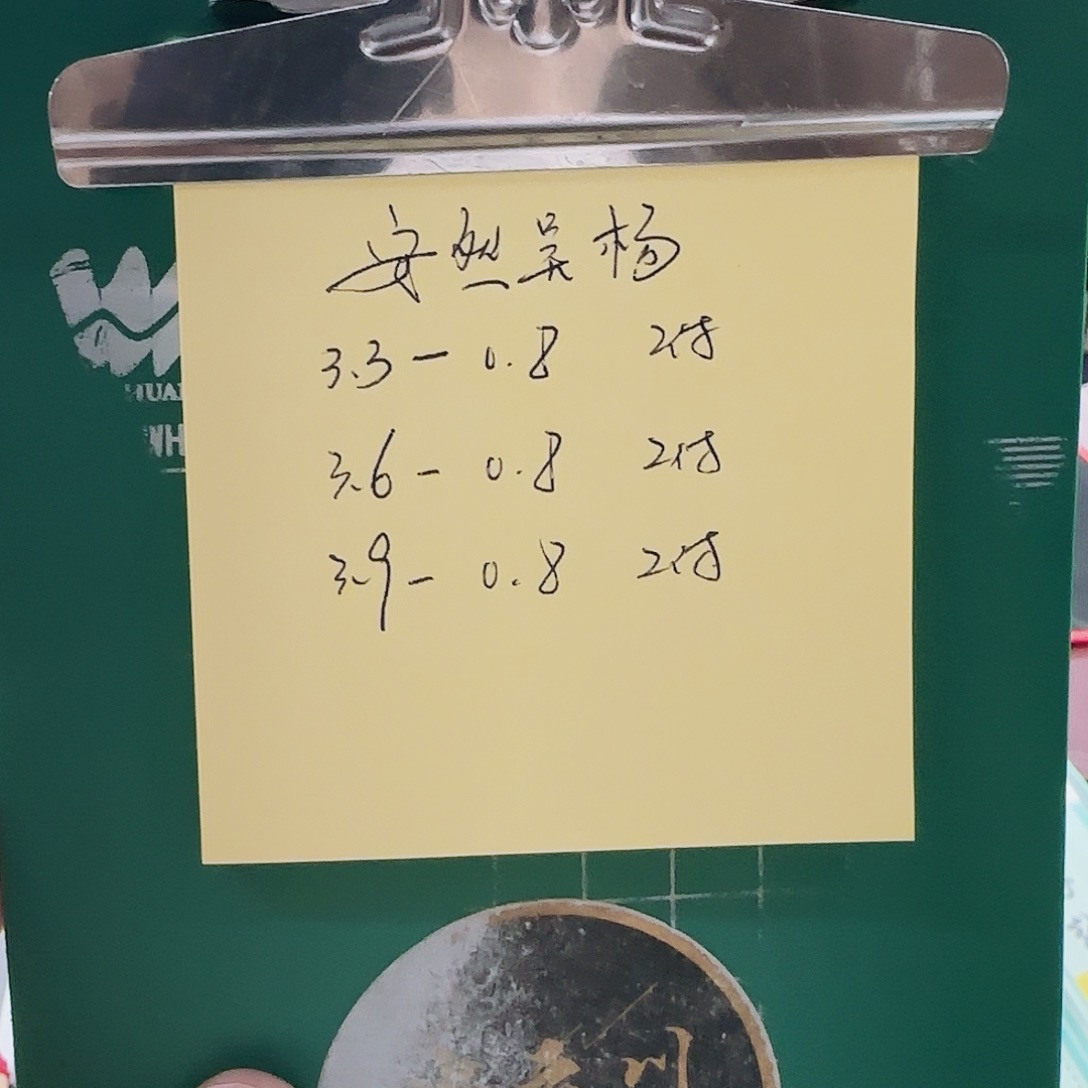 安然吴杨
3.3- 0.8 2付
3.6- 0.8 2付
3.9- 0.8 2付
HUAN
WH